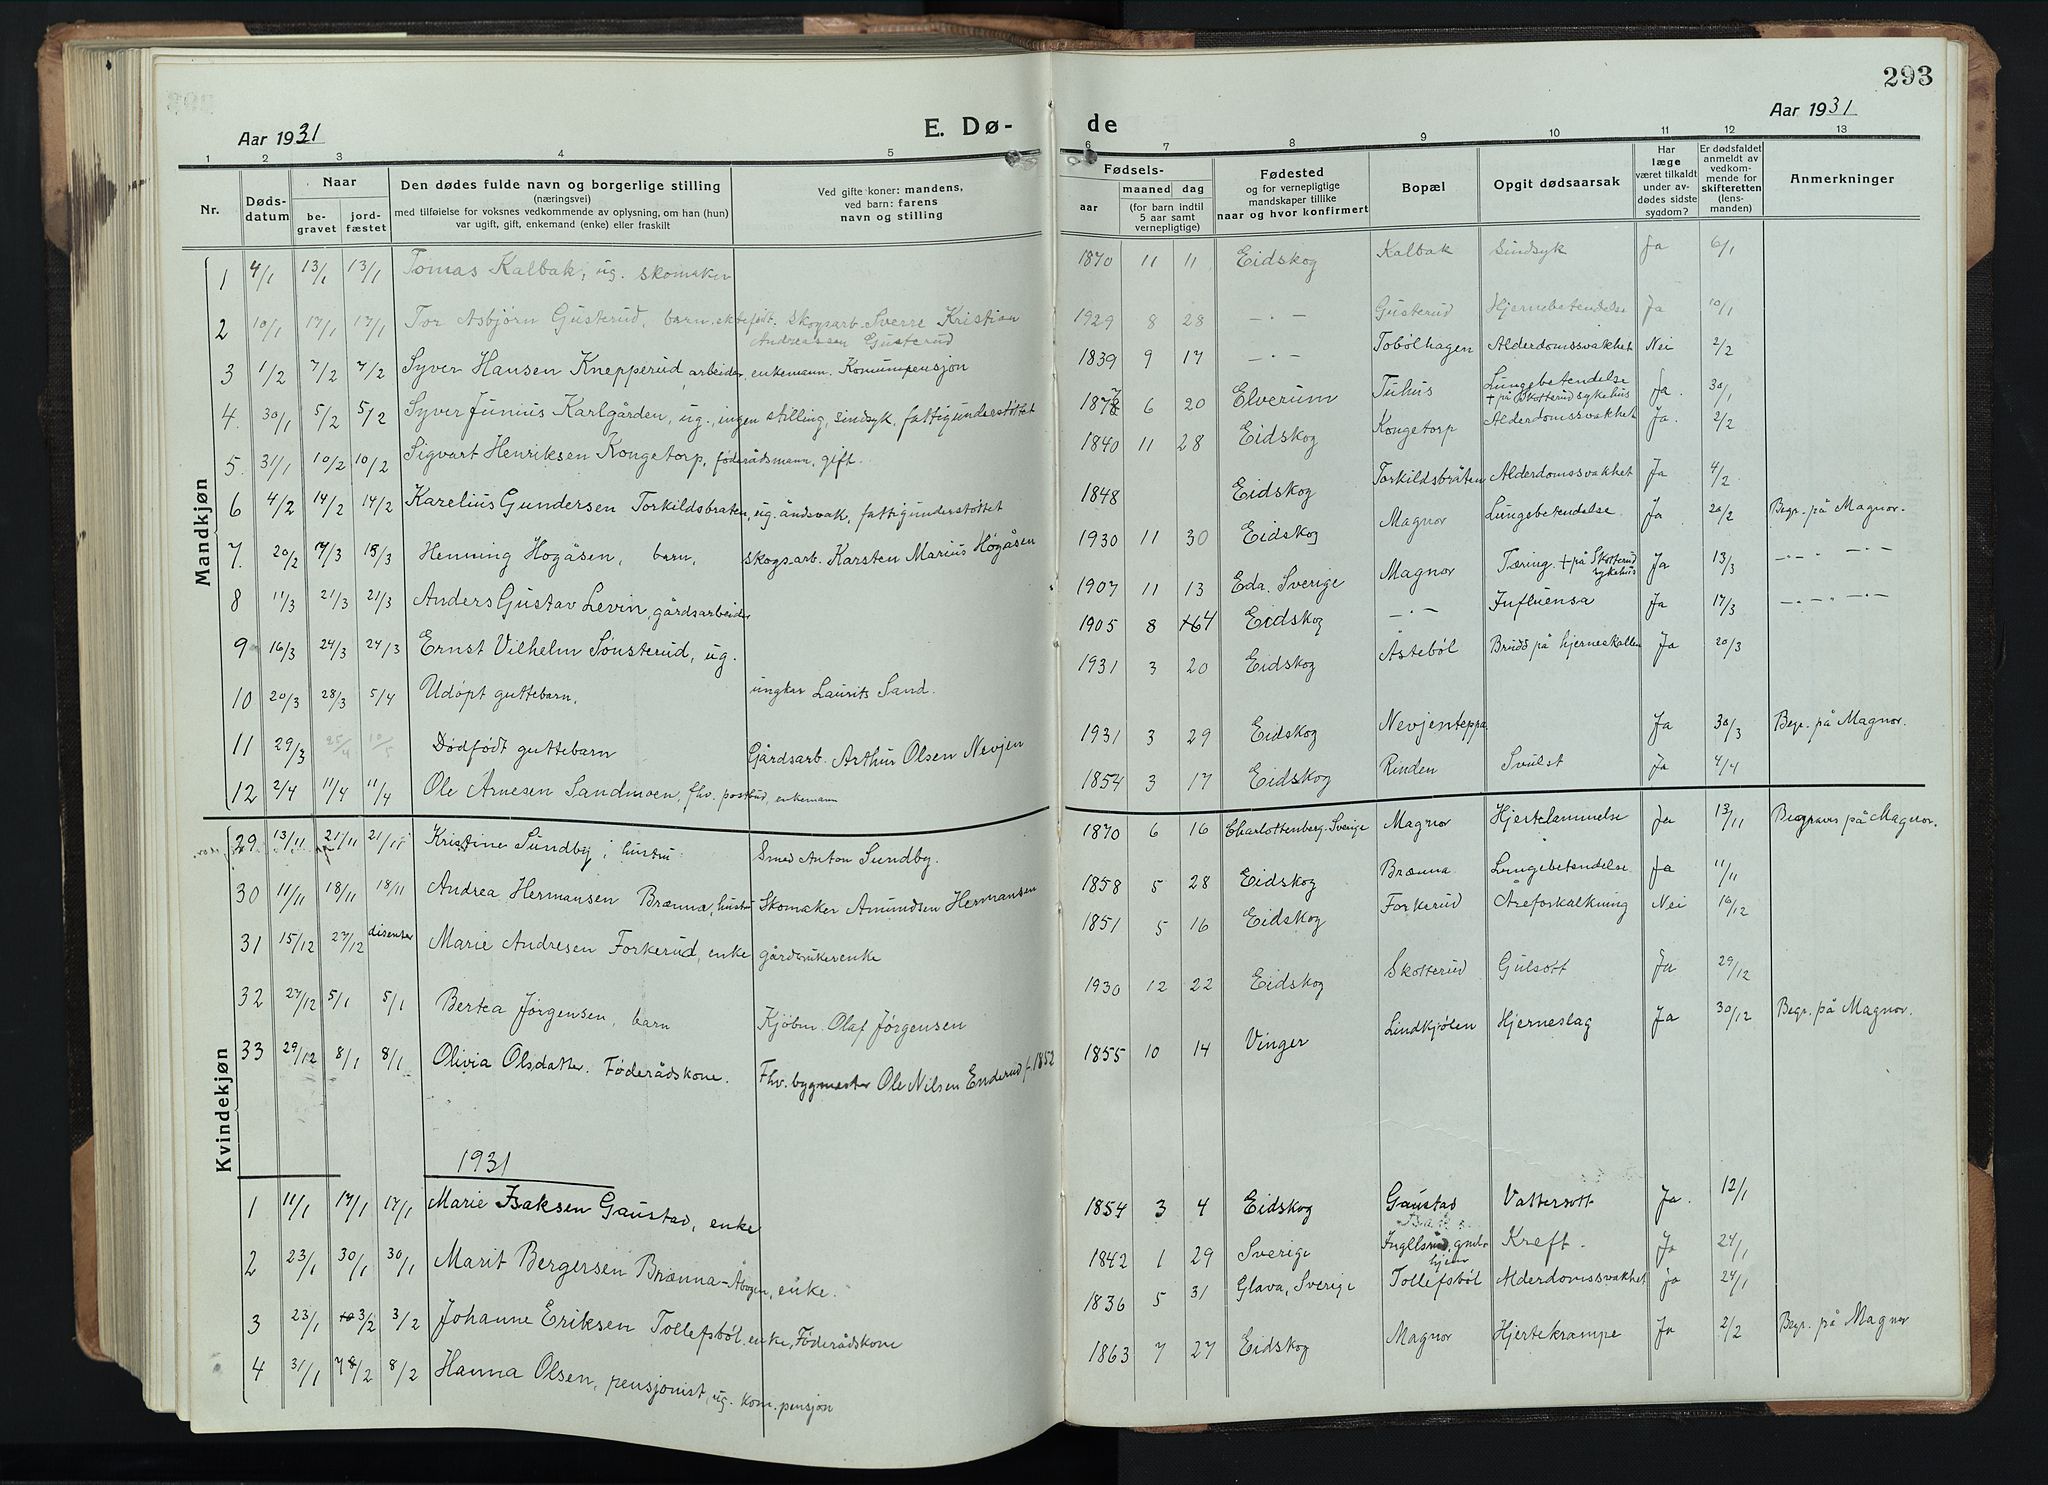 293
Aar 1931
E. Dø-
de
Aar 1931
1 2 3 4 5 6 7 8 9 10 11 12 13
Nr.
Døds-
datum
Naar
be-
gravet
jord-
fæstet
Den dødes fulde navn og borgerlige stilling
(næringsvei)
med tilføielse for voksnes vedkommende av oplysning, om han (hun)
var ugift, gift, enkemand (enke) eller fraskilt
Ved gifte koner: mandens,
ved barn: farens
navn og stilling
Fødsels-
aar
maaned
dag
(for barn indtil
5 aar samt
vernepligtige)
Fødested
og for vernepligtige
mandskaper tillike
naar og hvor konfirmert
Bopæl
Opgit dødsaarsak
Har
læge
været tilkaldt
under av-
dødes sidste
sygdom?
Er dødsfaldet
anmeldt av
vedkom-
mende for
skifteretten
(lens-
manden)
Anmerkninger
Mandkjøn
1 4/1 13/1 13/1 Tomas Kalbak, ug. skomaker 1870 11 11 Eidskog Kalbak Sindsyk Ja 6/1
2 10/1 17/1 17/1 Tor Asbjörn Gusterud, barn, ektefødt. Skogsarb. Sverre Kristian 1929 8 28 — · — Gusterud Hjernebetendelse Ja 10/1
Andreassen Gusterud
3 1/2 7/2 7/2 Syver Hansen Knepperud, arbeider, enkemann. Komunpensjon 1839 9 17 — · — Tobölhagen Alderdomssvakhet Nei 2/2
4. 30/1 5/2 5/2 Syver Junius Karlgården, ug., ingen stilling, sindsyk, fattigunderstøttet 1877 6 20 Elverum Tuhus Lungebetendelse Ja. 30/1
+ på Skotterud sykehus
5. 31/1 10/2 10/2 Sigvart Henriksen Kongetorp, föderådsmann, gift. 1840 11 28 Eidskog Kongetorp Alderdomssvakhet Ja. 2/2
6 4/2 14/2 14/2 Karelius Gundersen Torkildsbraten, ug. åndsvak, fattigunderstøttet 1848 Eidskog Torkildsbråten Alderdomssvakhet Ja 4/2
7. 20/2 7/3 15/3 Henning Högåsen, barn, skogsarb. Karsten Marius Högåsen 1930 11 30 Eidskog Magnor Lungebetendelse. Ja 20/2 Begr. på Magnor.
8 11/3 21/3 21/3 Anders Gustav Levin, gårdsarbeider 1907 11 13 Eda. Sverige Magnor Tæring. + på Skotterud Ja 13/3 — · — — · —
sykehus
9 16/3 24/3 24/3 Ernst Vilhelm Sönsterud, ug. 1905 8 Eidskog — · — Influensa Ja 17/3 — · — — · —
10 20/3 28/3 5/4 Udöpt guttebarn. ungkar Laurits Sand. 1931 3 20 Eidskog Åstebôl Brudd på hjerneskallen Ja 20/3
11 29/3 25/4 10/5 Dödfödt guttebarn Gårdsarb. Arthur Olsen Nevjen 1931 3 29 Eidskog Nevjenteppa Ja 30/3 Begr. på Magnor.
12 2/4 11/4 11/4 Ole Arnesen Sandmoen, fhv. postbud, enkemann 1854 3 17 Eidskog Rinden Svulst Ja 4/4
Kvindekjøn
29 13/11 21/11 21/11 Kristine Sundby, hustru. Smed Anton Sundby. 1870 6 16 Charlottenberg. Sverige Magnor Hjertelammelse Ja 13/11 Begraves på Magnor.
30 11/11 18/11 18/11 Andrea Hermansen Brænna, hustru Skomaker Amundsen Hermansen 1858 5 28 Eidskog Brænna Lungebetendelse Ja 11/11
31 15/12 27/12 disenter Marie Andresen Forkerud, enke gårdbrukerenke 1851 5 16 Eidskog Forkerud Åreforkalkning Nei 19/12
32 27/12 5/1 5/1 Bertea Jörgensen, barn Kjöbm. Olaf Jörgensen 1930 12 22 Eidskog Skotterud Gulsott Ja 29/12
33 29/12 8/1 8/1 Olivia Olsdatter. Föderådskone. Fhv. bygmester Ole Nilsen Enderud f. 1852 1855 10 14 Vinger Lindkjölen Hjerneslag Ja 30/12 Begr. på Magnor.
1931
1 11/1 17/1 17/1 Marie Isaksen Gaustad, enke 1854 3 4 Eidskog Gaustad Vattersott Ja. 12/1
2 23/1 30/1 30/1 Marit Bergersen Brænna-Åbogen, enke. 1842 1 29 Sverige Kreft. Ja 24/1
3 23/1 3/2 3/2 Johanne Eriksen Tollefsböl, enke, Föderådskone 1836 5 31 Glava, Sverige Tollefsböl Alderdomssvakhet ja 24/1
4 31/1 8/2 8/2 Hanna Olsen, pensjonist, ug. kom. pensjon 1863 7 27 Eidskog Magnor Hjertekrampe Ja 2/2 Begr. på Magnor